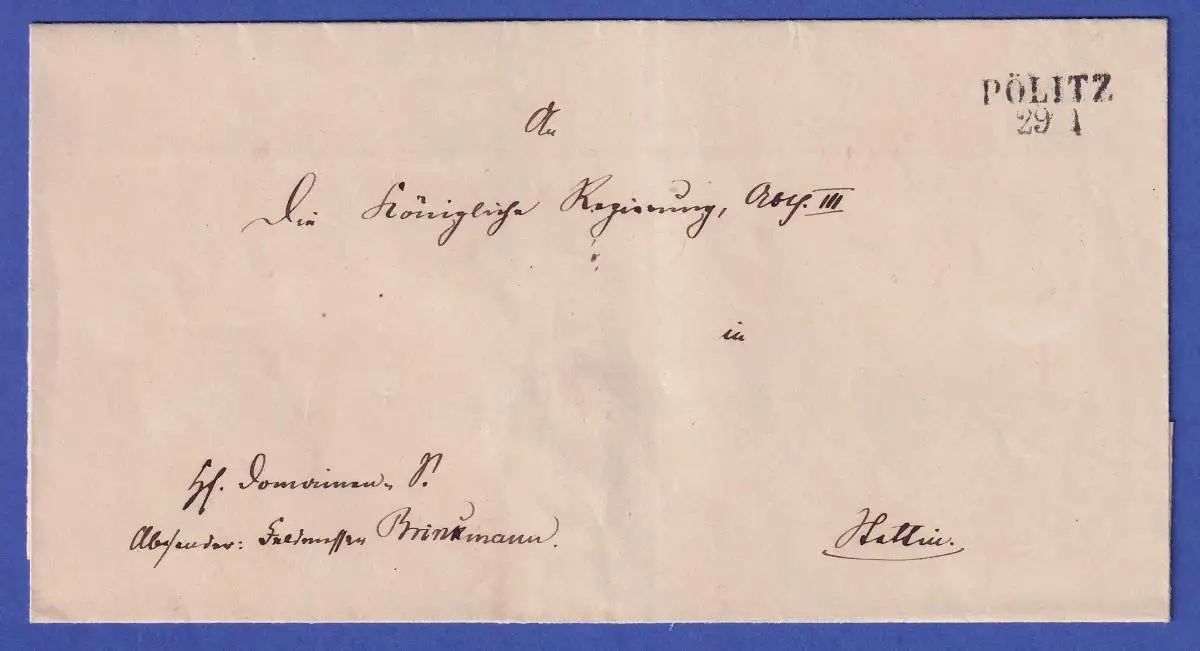 PÖLITZ
29 1
An
Die Königliche Regierung, Abth. III
in
Domainen- S.
Absender: Feldmesser Brinkmann.
Stettin.